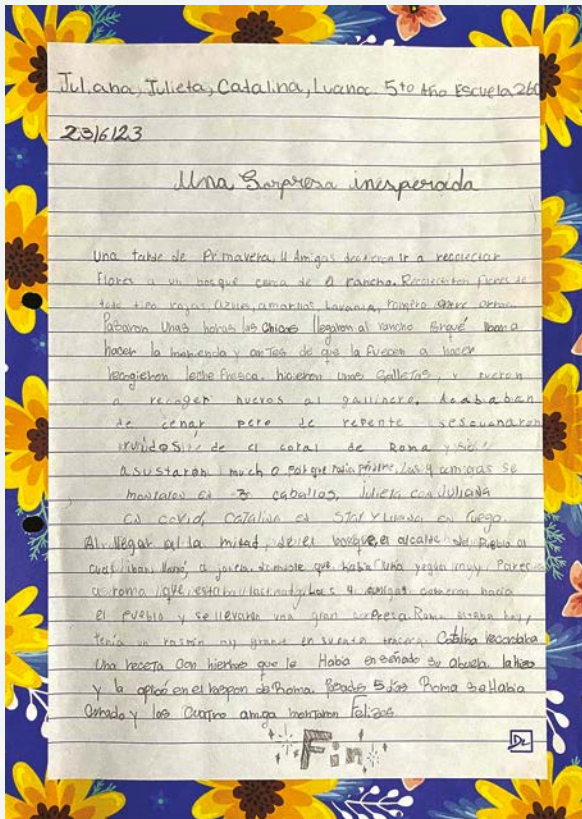 Juliana, Julieta, Catalina, Luana. 5to Año Escuela 260
23/6/23
Una Sorpresa inesperada
Una tarde de Primavera, 4 Amigas decidieron ir a recolectar
Flores a un bosque cerca de el rancho. Recolectaron flores de
todo tipo rojas, azules, amarillas, Lavanda, romero entre otras.
Pasaron Unas horas las Chicas llegaron al rancho iban a
hacer la merienda y antes de que la fuecen a hacer
recogieron leche fresca. hicieron unas Galletas, y fueron
a recoger huevos al gallinero. Acababan
de cenar pero de repente se escucharon
ruidos de el coral de Roma y se
asustaron mucho porque había las 4 amigas se
montaron en 3 caballos, Julieta con Juliana
en covid, Catalina en Star y Luana en Fuego.
Al llegar a la mitad de el bosque, el alcalde de Pueblo al
cual iban llamó a para decirle que había una yegua muy Parec
a roma que estaba lastimada, Las 4 amigas hacia
el pueblo y se llevaron una gran sorpresa. Roma estaba
tenía un muy grande en su Catalina recordaba
Una receta con hierbas que le Había enseñado su abuela, la hizo
y la aplicó en el de Roma. Pasados 5 días Roma se Había
Curado y las Cuatro amiga montaron Felizes
Fin